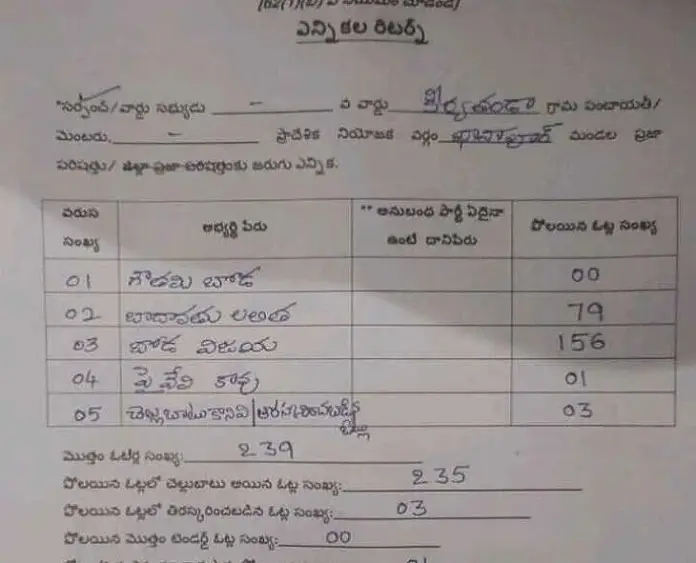 ఎన్నికల రిటర్న్
*సర్పంచ్/వార్డు సభ్యుడు - వ వార్డు గ్రామ పంచాయతీ/
మెంబరు, - ప్రాదేశిక నియోజక వర్గం ఖానాపూర్ మండల ప్రజా
పరిషత్తు/ జిల్లా ప్రజా పరిషత్తుకు జరుగు ఎన్నిక.
వరుస సంఖ్య
అభ్యర్థి పేరు
** అనుబంధ పార్టీ ఏదైనా ఉంటే దానిపేరు
పోలయిన ఓట్ల సంఖ్య
01 గౌతమి బోడ 00
02 బాదావతు లలిత 79
03 బోడ విజయ 156
04 పై వేవి కావు 01
05 చెల్లుబాటుకానివి/తిరస్కరించబడిన ఓట్లు 03
మొత్తం ఓటర్ల సంఖ్య: 239
పోలయిన ఓట్లలో చెల్లుబాటు అయిన ఓట్ల సంఖ్య: 235
పోలయిన ఓట్లలో తిరస్కరించబడిన ఓట్ల సంఖ్య: 03
పోలయిన మొత్తం టెండర్డ్ ఓట్ల సంఖ్య: 00